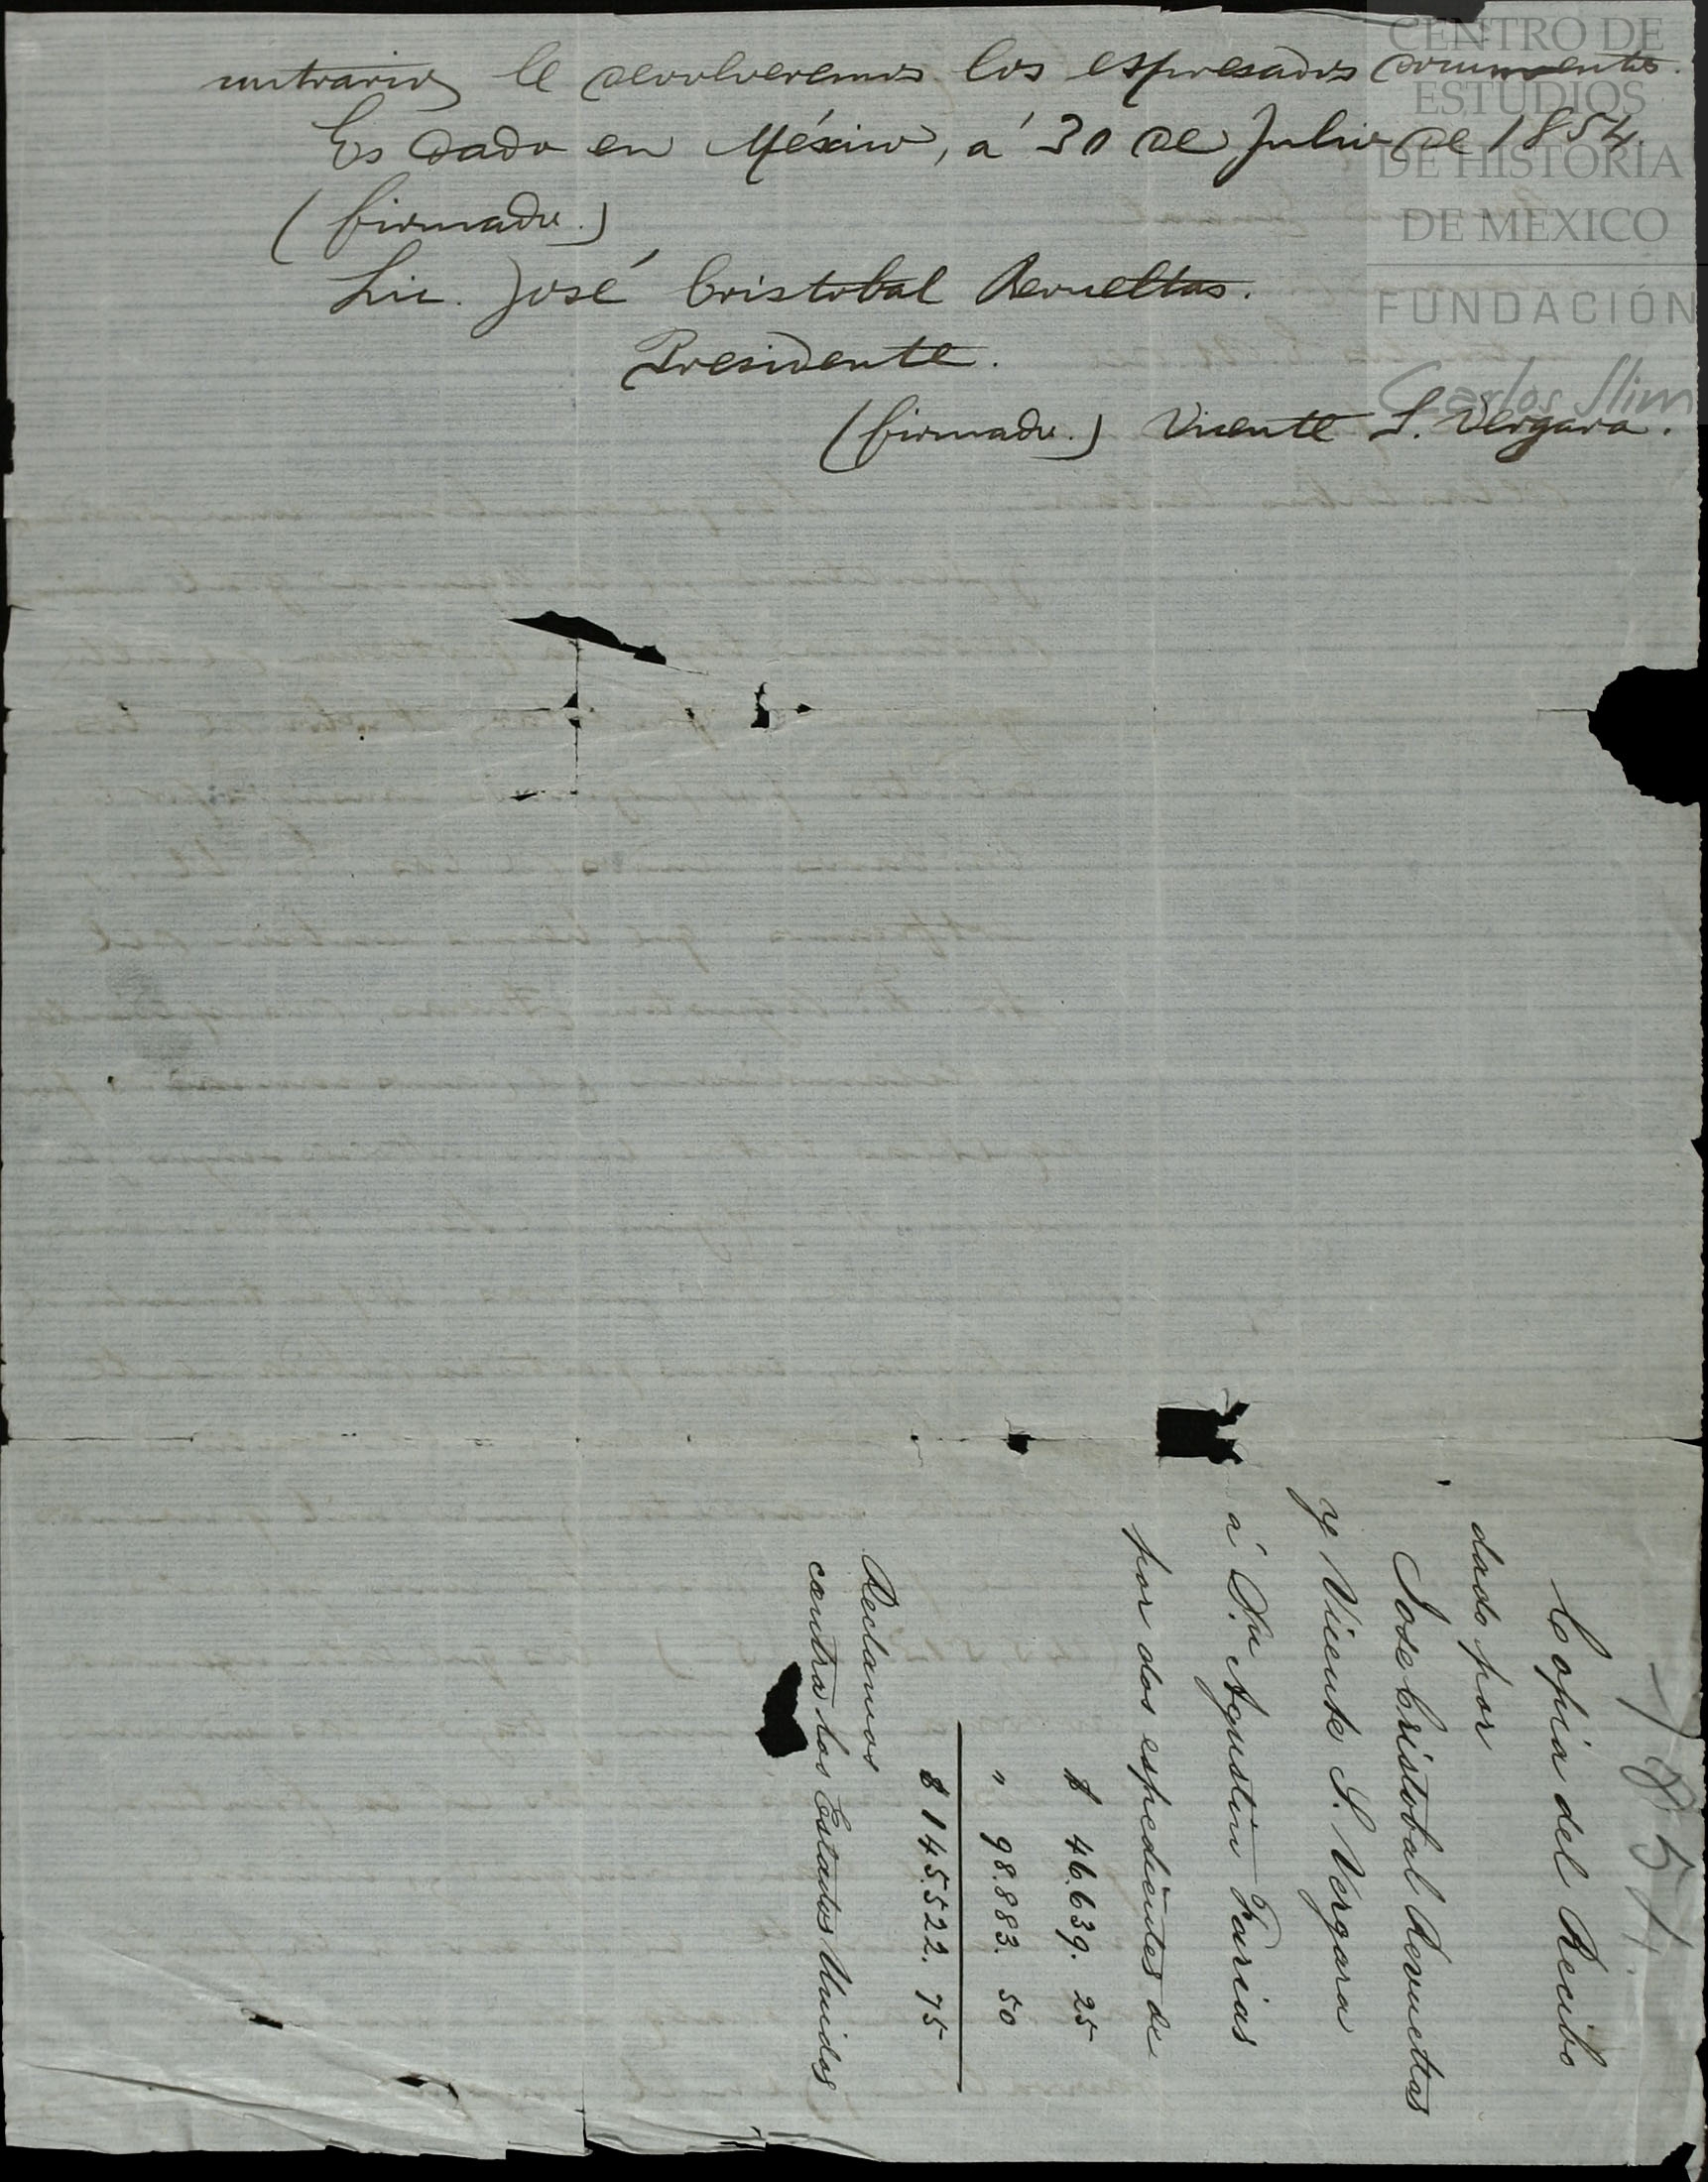 contrario, le devolveremos los espresados documentos.
Es dado en México, á 30 de Julio de 1854.
(firmado.)
Lic. José Cristobal Revueltas.
Presidente.
(firmado.) Vicente S. Vergara.
CENTRO DE
ESTUDIOS
DE HISTORIA
DE MEXICO
FUNDACIÓN
Carlos Slim
1854.
Copia del Recibo
dado por
Jose Cristobal Revueltas
y Vicente S. Vergara
á Dn Agustin Farias
por dos espedientes de
$ 46.639. 25
" 98.883. 50
$ 145.522. 75
Reclamos
contra los Estados Unidos